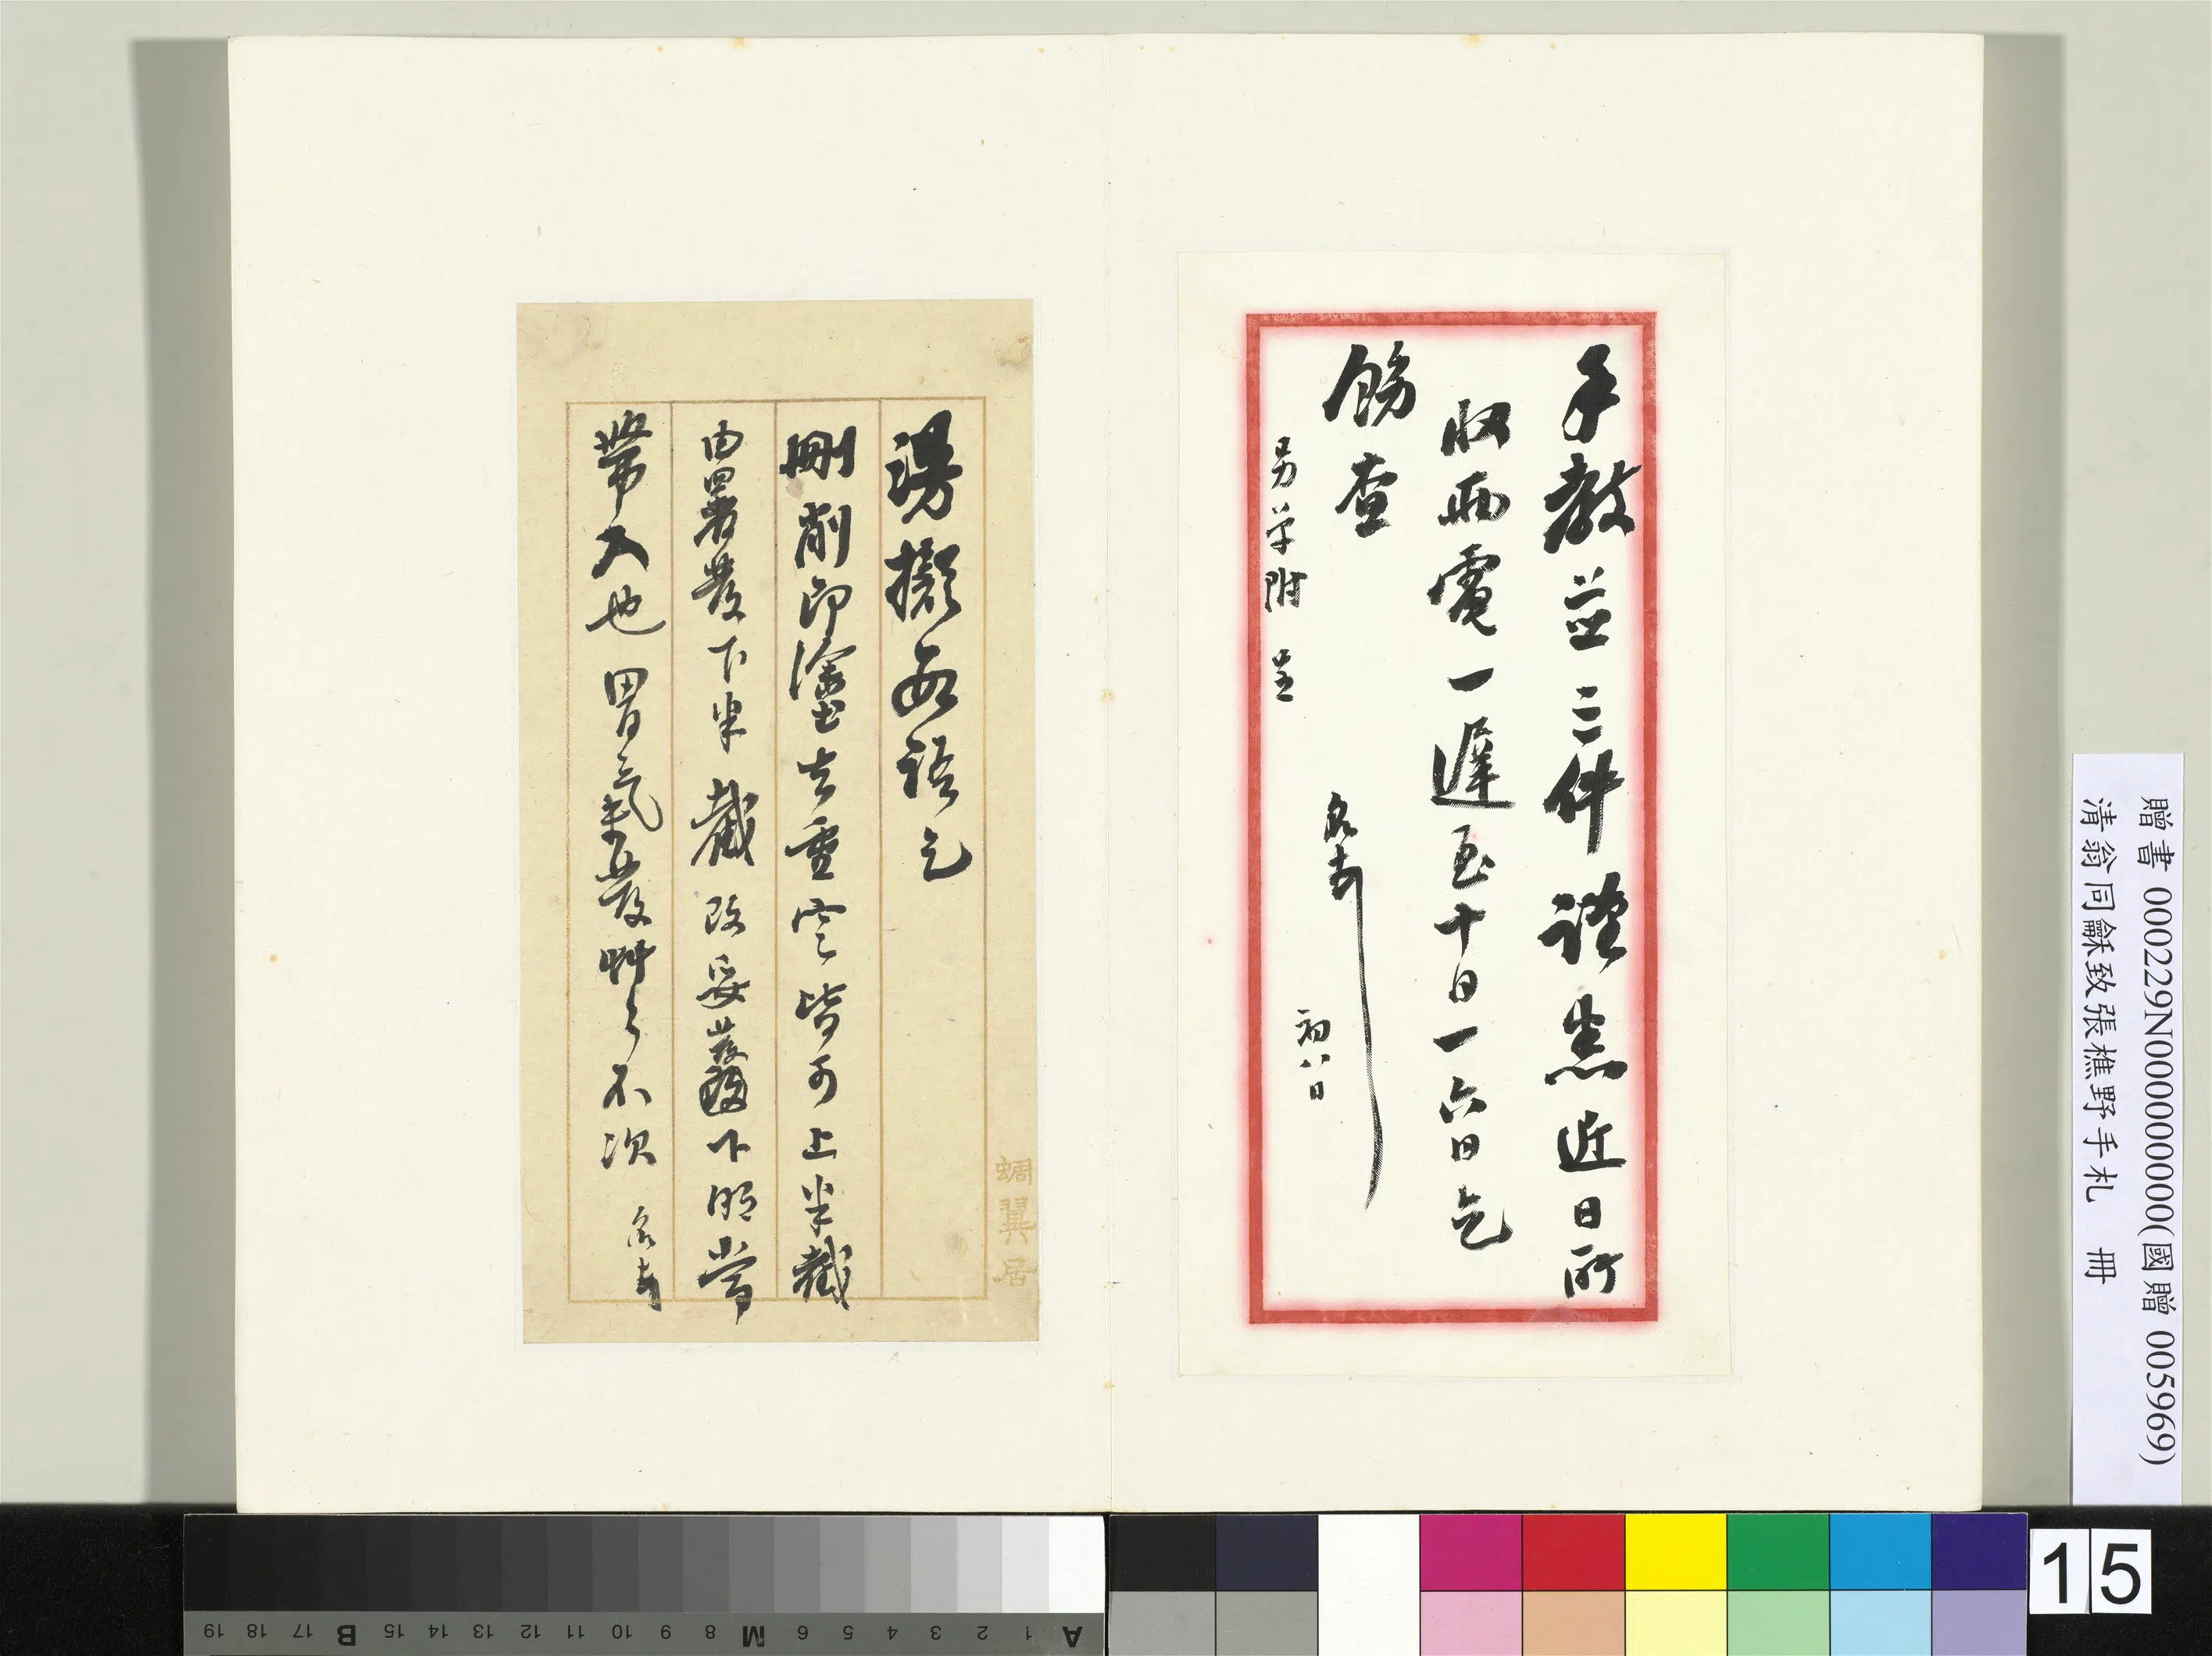 手教並三件謹悉近日所
收兩電一遲至十日一六日乞
飭查
名叩
初八日
另單附呈
謾擬數語乞
刪削印塗去重寫皆可上半截
由署發下半截改妥發下明當
帶入也胃氣發艸々不次 名叩
蜩翼居
贈書 000229N000000000(國贈 005969)
清翁同龢致張樵野手札 冊
15
A 1 2 3 4 5 6 M 8 9 10 11 12 13 14 15 B 17 18 19